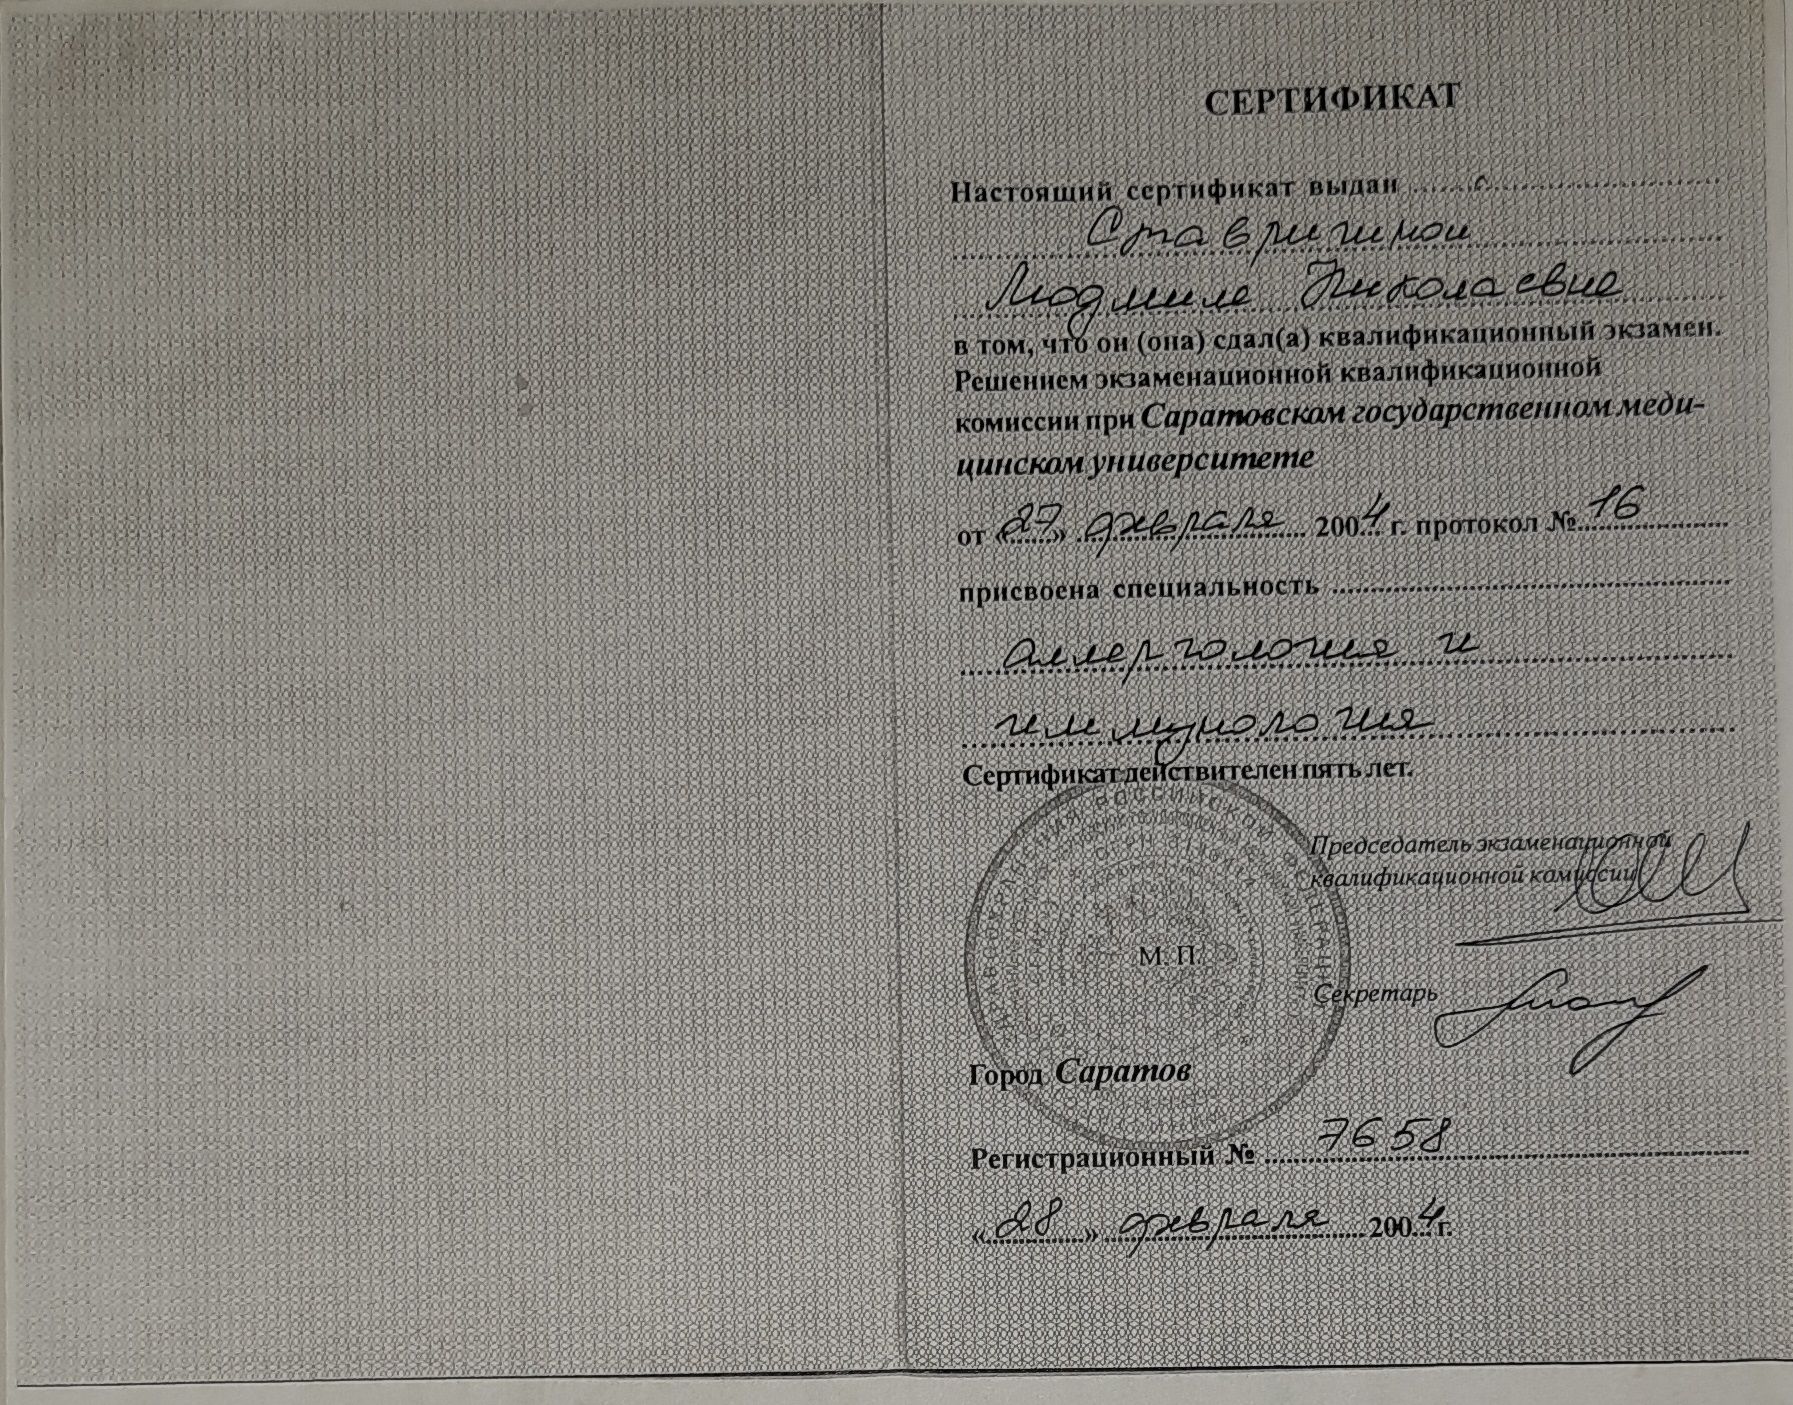 СЕРТИФИКАТ
Настоящий сертификат выдан
Ставригиной
Людмиле Николаевне
в том, что он (она) сдал(а) квалификационный экзамен.
Решением экзаменационной квалификационной
комиссии при Саратовском государственном меди-
цинском университете
от «27» февраля 2004 г. протокол № 16
присвоена специальность
аллергология и
иммунология
Сертификат действителен пять лет.
ЗДРАВООХРАНЕНИЯ РОССИЙСКОЙ ФЕДЕРАЦИИ
Председатель экзаменационной
квалификационной комиссии
М. П.
Секретарь
Город Саратов
Регистрационный № 7658
«28» февраля 2004 г.